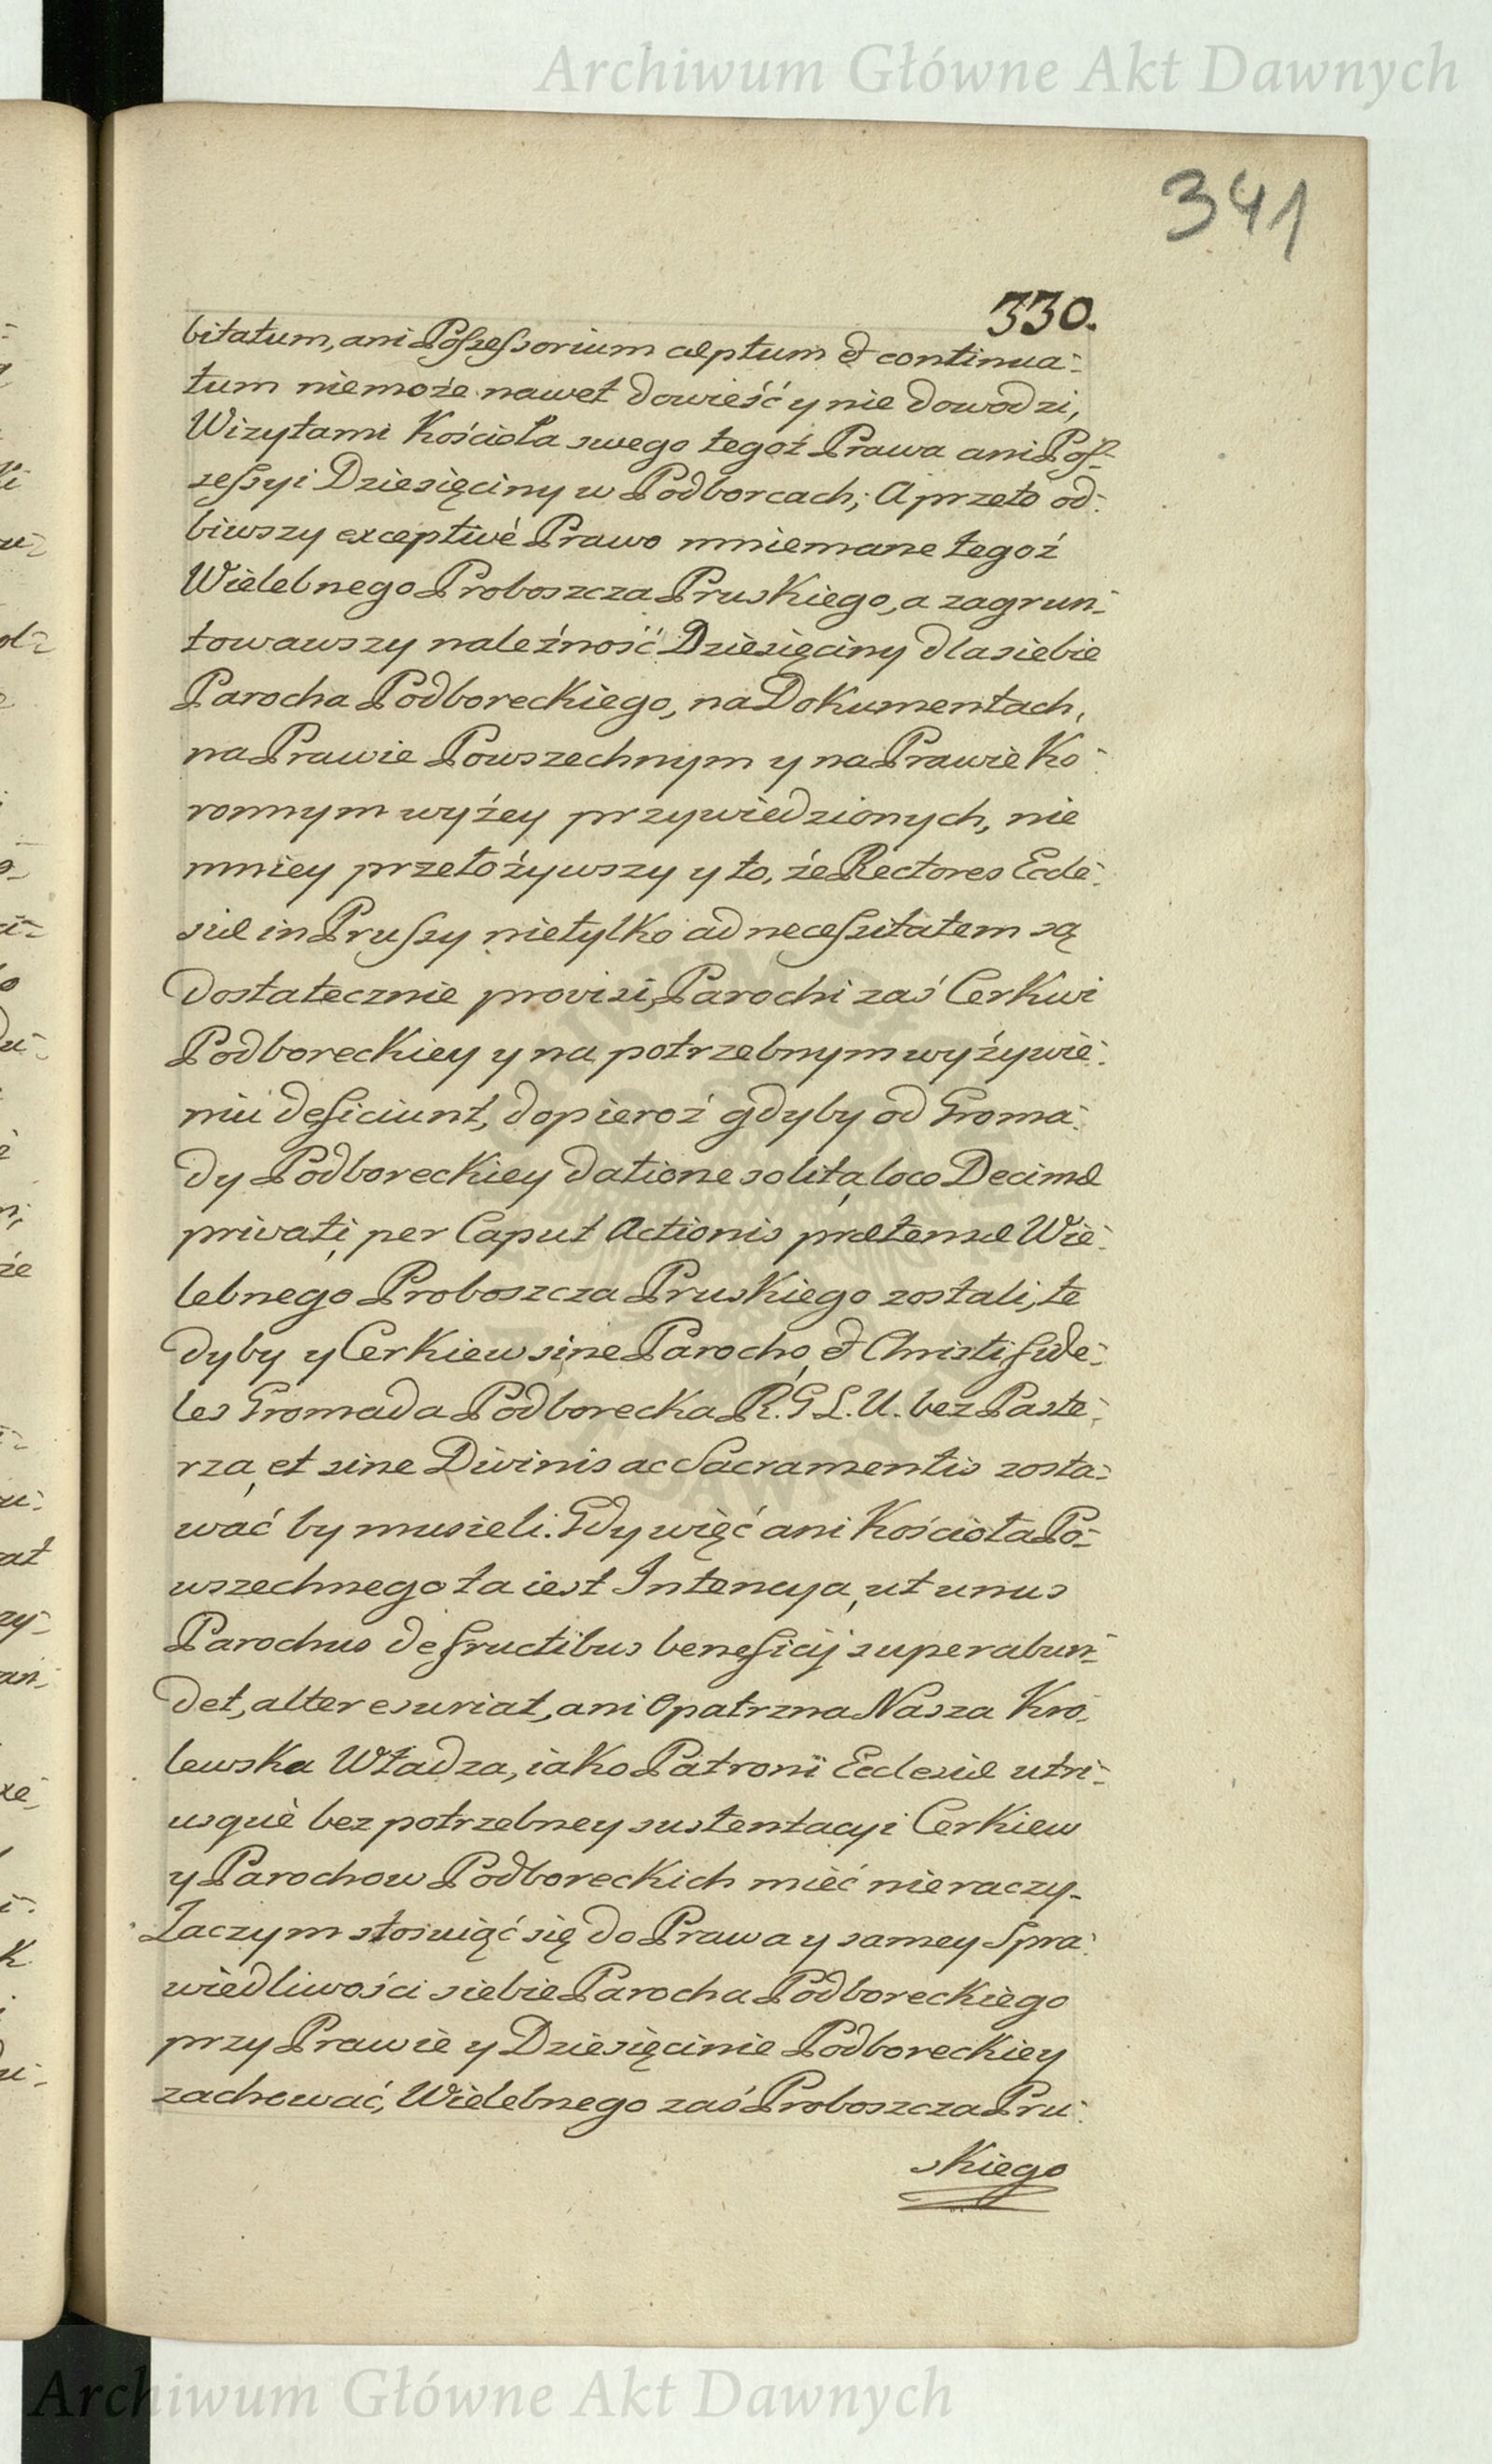 Archiwum Główne Akt Dawnych
341
330.
bitatum, ani Possessorium cæptum et continua-
tum niemoże nawet dowieść y nie dowodzi,
Wizytami Kościoła swego tegoż Prawa ani Pos-
sessyi Dziesięciny w Podborcach; A przeto od-
biwszy exceptivè Prawo mniemane tegoż
Wielebnego Proboszcza Pruskiego, a zagrun-
towawszy należność Dziesięciny dla siebie
Parocha Podboreckiego, na Dokumentach,
na Prawie Powszechnym y na Prawie Ko-
ronnym wyżey przywiedzionych, nie
mniey przełożywszy y to, że Rectores Ecle-
siæ in Prussy nietylko ad necessitatem są
dostatecznie provisi, Parochi zaś Cerkwi
Podboreckiey y na potrzebnym wyżywie-
niu deficiunt, dopieroż gdyby od Groma-
dy Podboreckiey datione solita loco Decimæ
privati per Caput Actionis prætensæ Wie-
lebnego Proboszcza Pruskiego zostali, te
dyby y Cerkiew sine Parocho, et Christi fide-
les Gromada Podborecka R. G L. U. bez Paste-
rza, et sine Divinis ac Sacramentis zosta-
wać by musieli. Gdy więć ani Kościoła Po-
wszechnego ta iest Intencya, ut unus
Parochus de fructibus beneficij superabun-
det, alter esuriat, ani Opatrzna Nasza Kro-
lewska Władza, iako Patroni Ecclesiæ utri-
usquè bez potrzebney sustentacyi Cerkiew
y Parochow Podboreckich mieć nieraczy-
Zaczym stosuiąć się do Prawa y samey Spra-
wiedliwości siebie Parocha Podboreckiego
przy Prawie y Dziesięcinie Podboreckiey
zachować, Wielebnego zaś Proboszcza Pru-
skiego
Archiwum Główne Akt Dawnych